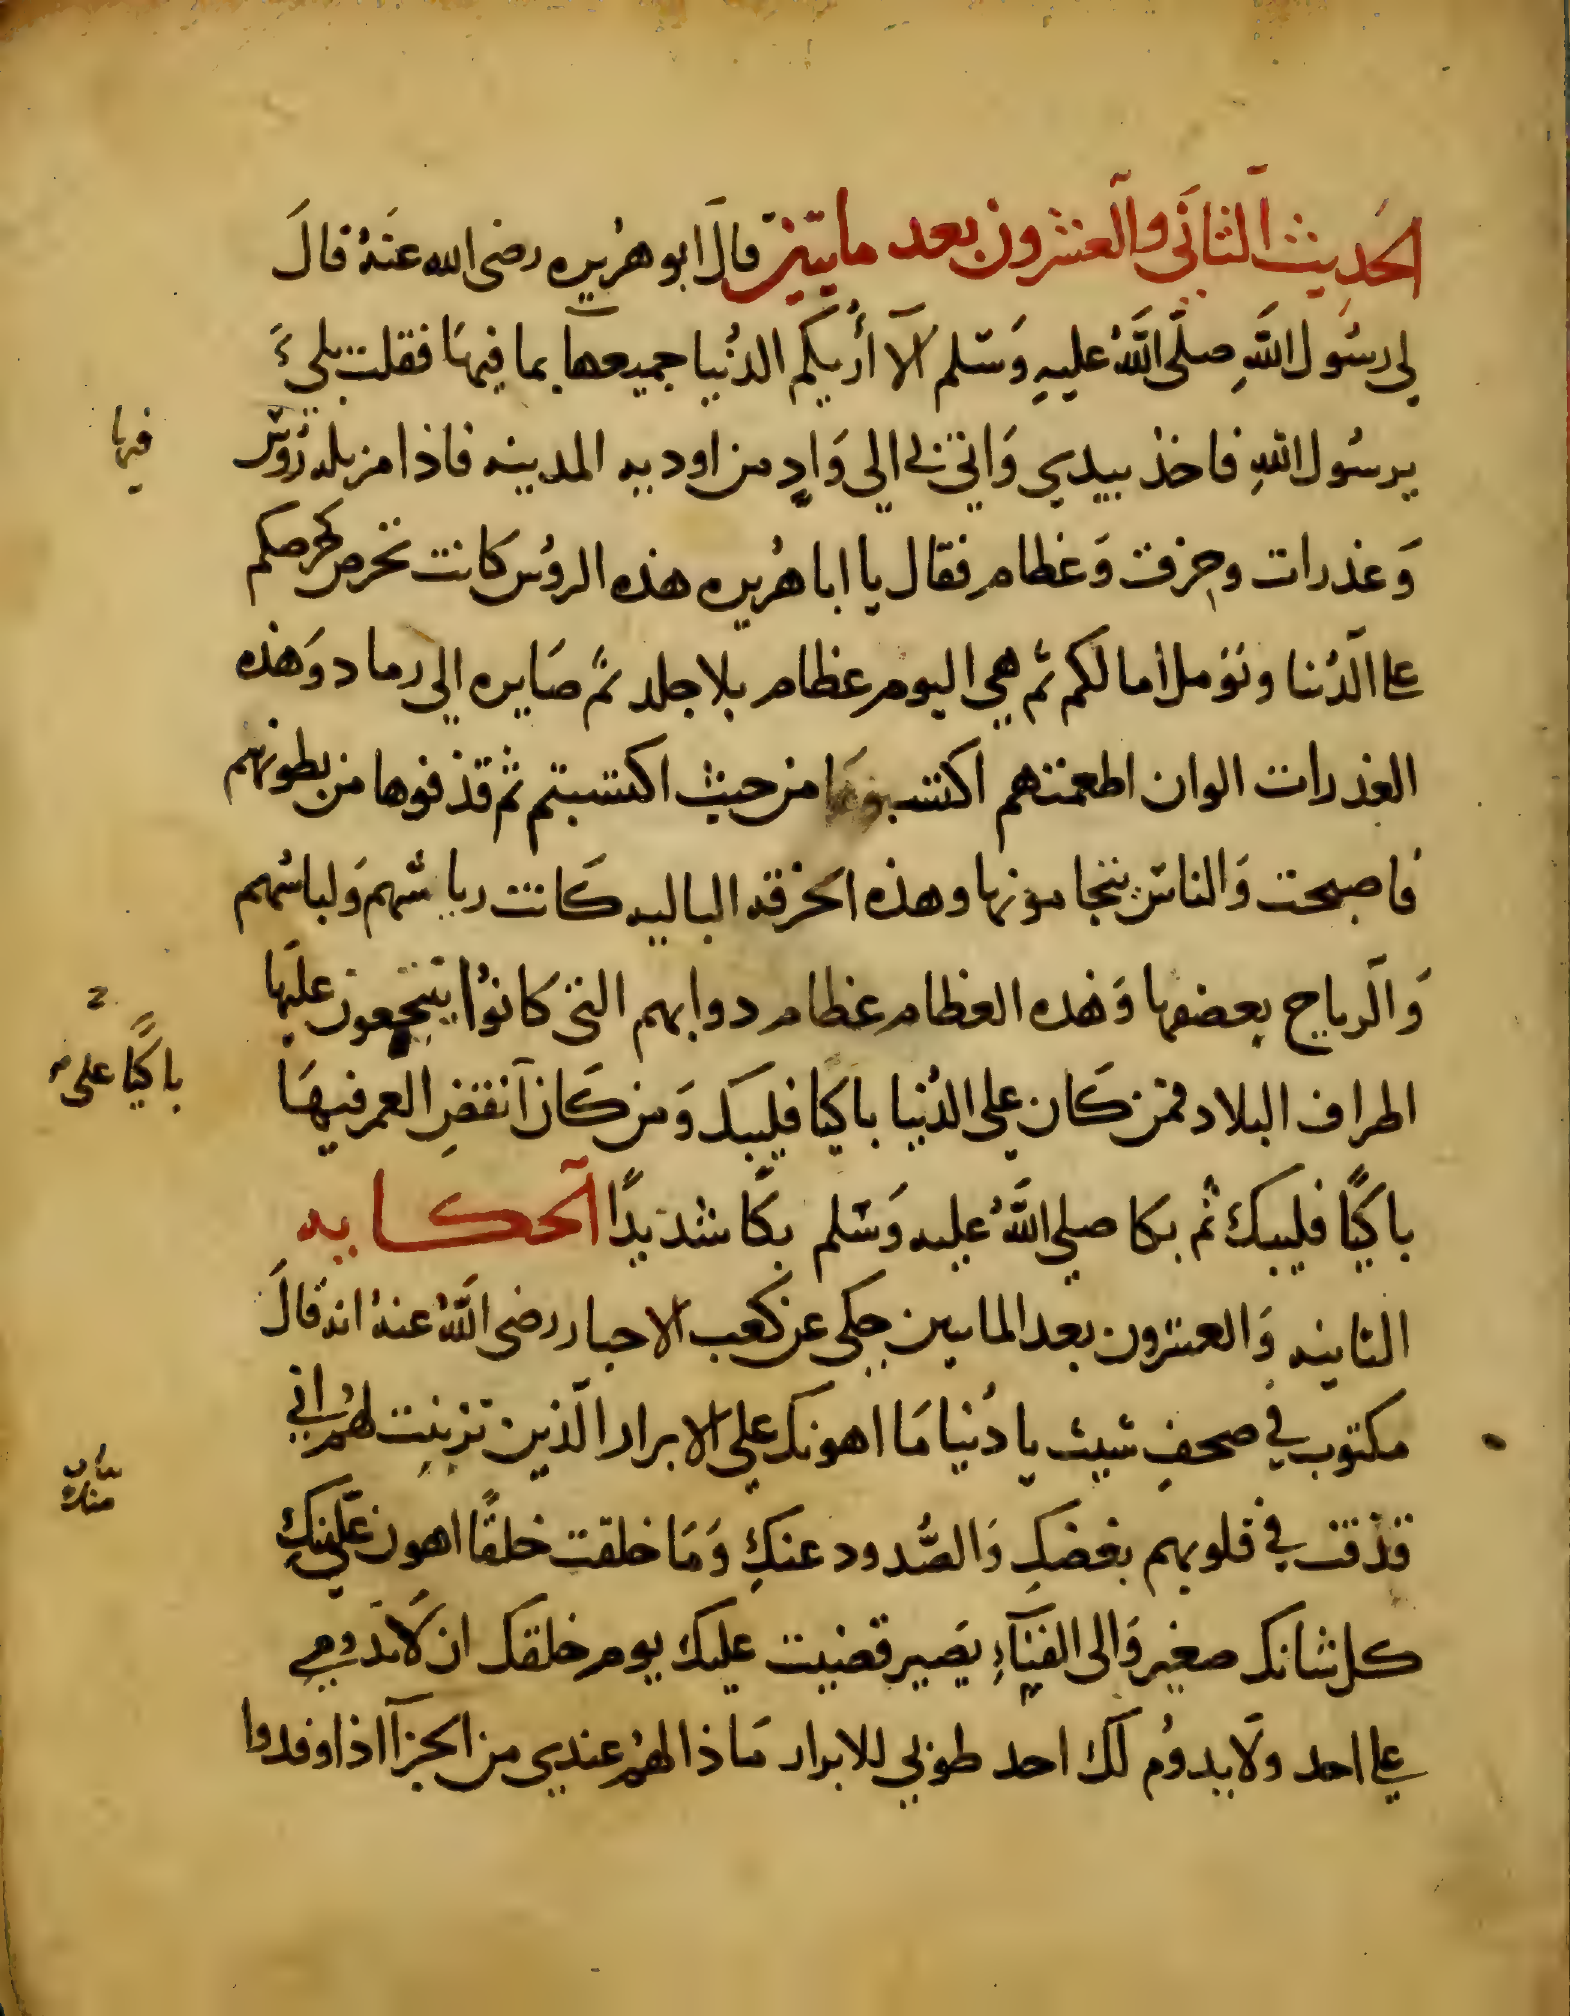 الحَديث الثاني والعشرون بعد مايتين قال ابو هُريره رضى الله عنهُ قالَ
لي رسُول اللَّهِ صلَّى اللَّهُ عليهِ وَسَلم ألا أُريكم الدُنيا جميعها بما فيهَا فقلت بلىَ
يرسُول اللهِ فاخذ بيدي وَاتى بى الى وَادٍ من اوديه المدينه فاذا مزبله رُوس
فيها
وَعذرات وخِرق وَعظام فقال يا ابا هُريره هذه الروُس كانت تحرص كحرصكم
على الدُنيا وتؤمل أمالكم ثم هي اليوم عظام بلا جلد ثمَّ صَايره الي رماد وَهذه
العذرات الوان اطعمتهم اكتسبوهَا من حيث اكتسبتم ثم قذفوها من بطونهم
فاصبحت وَالناس يتحامونها وهذه الخرقه الباليه كَانت رياشهم وَلباسُهم
وَالرياح بعضفها وَهذه العظام عظام دوابهم التى كانوُا ينتجعون عليها
اطراف البلاد فمن كَان على الدُنيا باكيًا فليبك وَمن كَان آنقضِ العمر فيهَا
باكيًا على
باكيًا فليبك ثُم بكا صلى اللَّهُ عليه وَسَلم بكًا شديدًا الحكايه
الثانيه وَالعشرون بعد المايتين حكى عن كعب الاحبار رضى اللَّهُ عنهُ انه قالَ
مكتوب في صحفِ شيث يا دُنيا مَا اهونك علي الابرار الَّذين تزينت لهُم اني
قذفت في قلوبهم بغضكِ وَالصُّدود عنكِ وَمَا خلقت خلقًا اهون عَلَي منكِ
منك
كل شانك صغير وَالى الفنَآءِ يَصير قضيت عليك يوم خلقتك ان لَا تدومي
على احد ولَا يدوُم لكَ احد طوبي للابرار مَا ذا لهُم عندي من الجزآ اذا وفدوا